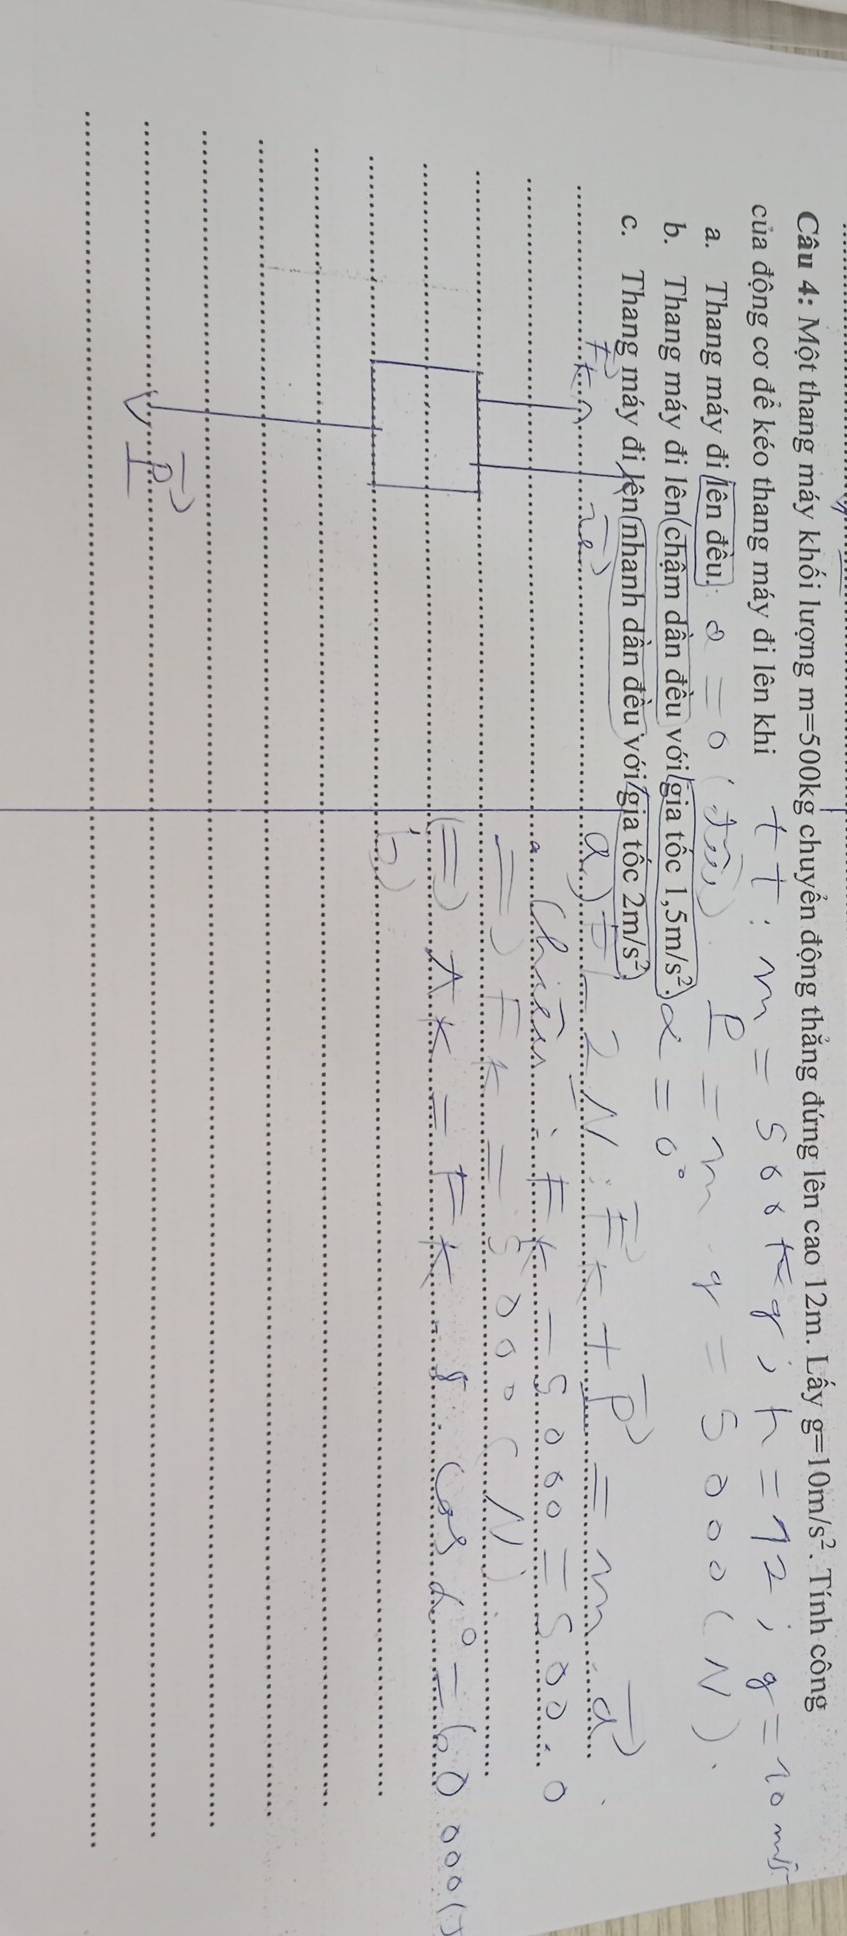 Câu 4: Một thang máy khối lượng m=500kg chuyển động thẳng đứng lên cao 12m. Lấy g=10m/s². Tính công
của động cơ để kéo thang máy đi lên khi
tt: m = 500kg; h = 12; g = 10 m/s²
a. Thang máy đi lên đều. a = 0
P = m.g = 5000(N).
b. Thang máy đi lên chậm dần đều với gia tốc 1,5m/s².
α = 0°
c. Thang máy đi lên nhanh dần đều với gia tốc 2m/s².
Fk
P
a.) ĐL 2 N: Fk + P = m.a
Chiếu: Fk - 5000 = 500.0
=) Fk = 5000 (N)
(=) Ak = Fk. s. cos α° = 60 000 (J
b.)